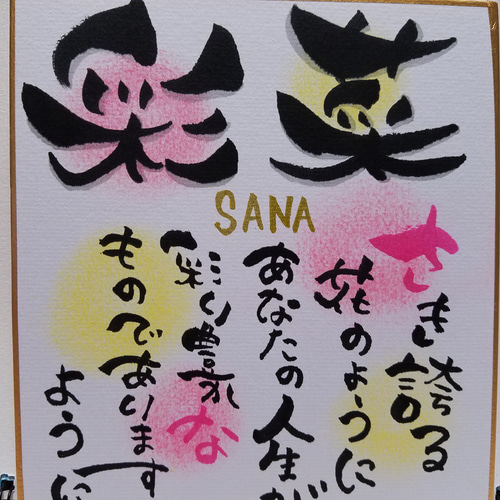 彩菜
SANA
さき誇る
花のように
あなたの人生が
彩り豊かな
ものであります
ように